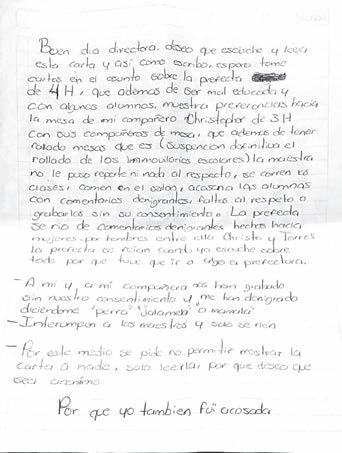 Buen dia directora. deseo que escuche y lea
esta carta y asi, como escribo, espero tome
cartas en el asunto sobre la prefecta
de 4H, que ademas de ser mal educada y
con algunos alumnos, muestra preferencias hacia
la mesa de mi compañero Christopher de 3H
con sus compañeros de mesa, que ademas de tener
rollado mesas que es (suspención definitiva el
rollado de los inmoviliarios escolares) la maestra
no le puso reporte ni nada al respecto, se corren
clases, comen en el salon, acosan a las alumnas
con comentarios denigrantes, faltas al respeto o
grabarlos sin su consentimiento. La prefecta
se rio de comentarios denigrantes hechos hacia
mujeres por hombres entre ello Christo y Torres
la prefecta se reian cuando yo escuche sobre
todo por que tuve que ir a algo a prefectura.
- A mi y a mi compañera nos han grabado
sin nuestro consentimiento y me han denigrado
diciendome "perra"
- Interrumpen a los maestros y solo se rien
- Por este medio se pide no permitir mostrar la
carta a nadie, solo leerla, por que deseo que
sea anonimo
Por que yo tambien fui acosada